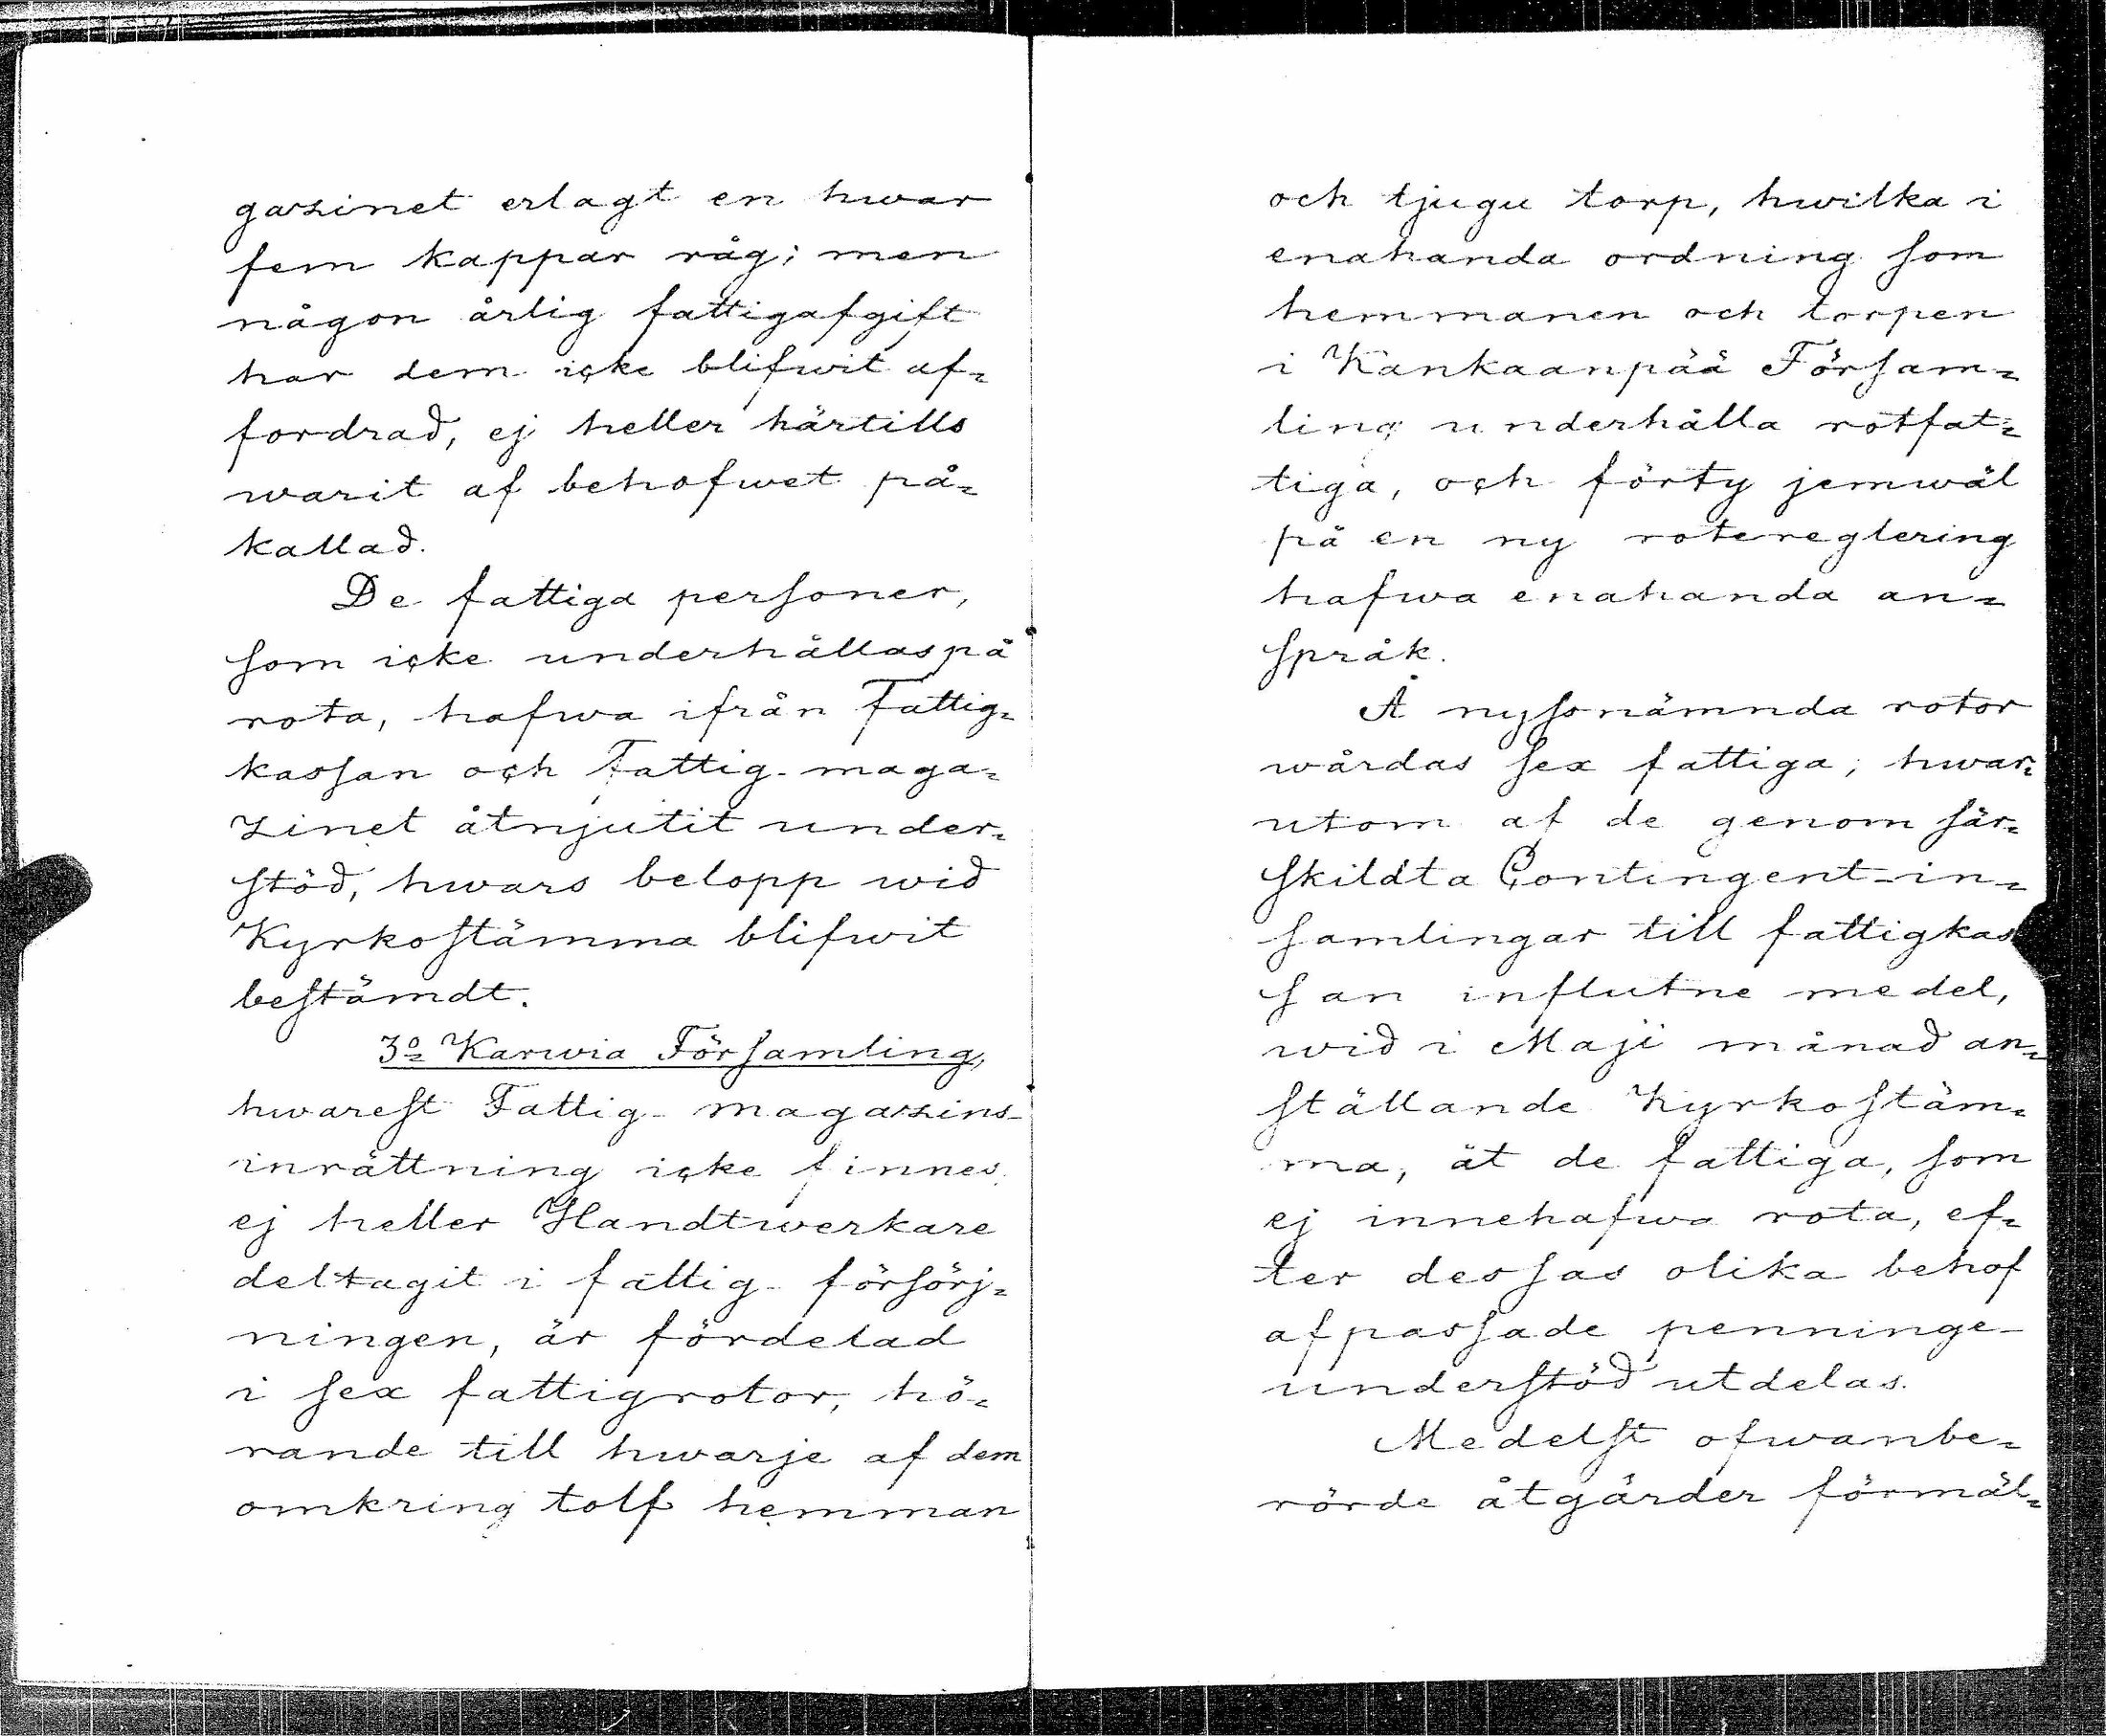 gazinet erlagt en hwar
fem kappar råg; men
någon årlig fattigafgift
har dem icke blifwit af=
fordrad, ej heller härtills
warit af behofwet på=
kallad.
De fattiga personer,
som icke underhållas på
rota, hafwa ifrån Fattig=
kassan och Fattig-maga=
zinet åtnjutit under=
stöd, hwars belopp wid
Kyrkostämma blifwit
bestämdt.
3o Karwia Församling,
hwarest Fattig-magazins-
inrättning icke finnes,
ej heller Handtwerkare
deltagit i fattig-försörj=
ningen, är fördelad
i sex fattigrotor, hö=
rande till hwarje af dem
omkring tolf hemman
och tjugu torp, hwilka i
enahanda ordning som
hemmanen och torpen
i Kankaanpää Försam=
ling underhålla rotfat=
tiga, och förty jemwäl
på en ny rotereglering
hafwa enahanda an=
språk.
Å nyssnämnda rotor
wårdas sex fattiga; hwar=
utom af de genom sär=
skildta Contingent-in=
samlingar till fattigkas
san influtne medel,
wid i Maji månad an=
ställande Kyrkostäm=
ma, åt de fattiga, som
ej innehafwa rota, ef=
ter dessas olika behof
afpassade penninge-
understöd utdelas.
Medelst ofwanbe=
rörde åtgärder förmäl=